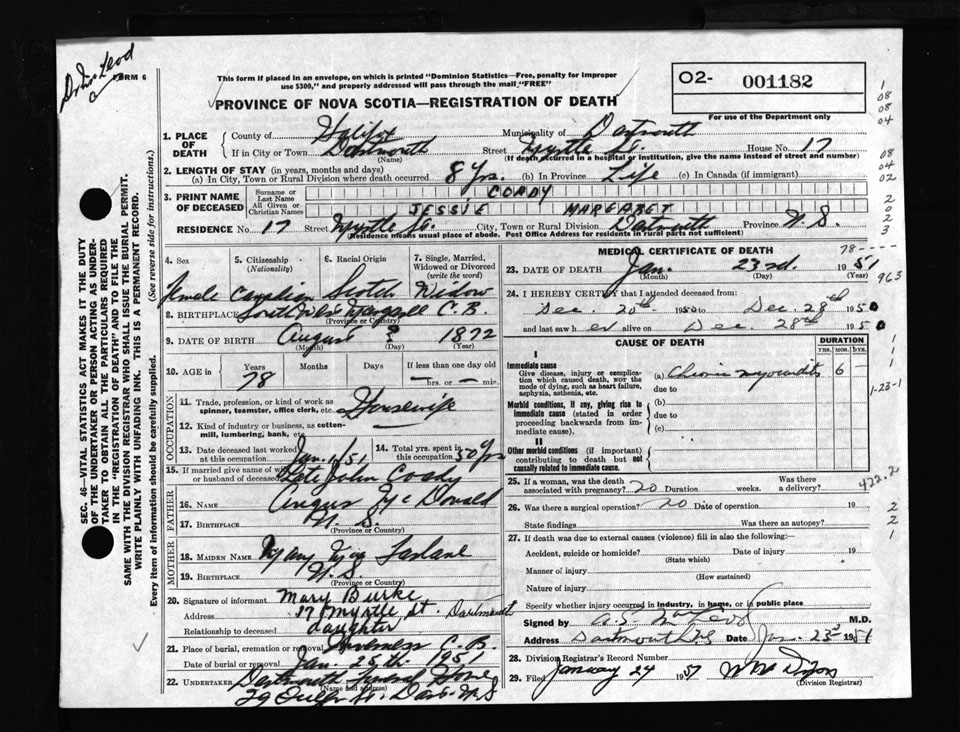 FORM 6
This form if placed in an envelope, on which is printed "Dominion Statistics—Free, penalty for improper
use $300," and properly addressed will pass through the mail "FREE"
PROVINCE OF NOVA SCOTIA—REGISTRATION OF DEATH
O2- 001182
For use of the Department only
SEC. 46—VITAL STATISTICS ACT MAKES IT THE DUTY
OF THE UNDERTAKER OR PERSON ACTING AS UNDER-
TAKER TO OBTAIN ALL THE PARTICULARS REQUIRED
IN THE "REGISTRATION OF DEATH" AND TO FILE THE
SAME WITH THE DIVISION REGISTRAR WHO SHALL ISSUE THE BURIAL PERMIT.
WRITE PLAINLY WITH UNFADING INK. THIS IS A PERMANENT RECORD.
Every item of information should be carefully supplied. (See reverse side for instructions.)
1. PLACE OF DEATH County of Halifax Municipality of Dartmouth
If in City or Town Dartmouth Street Myrtle St. House No. 17
(Name) (If death occurred in a hospital or institution, give the name instead of street and number)
2. LENGTH OF STAY (in years, months and days)
(a) In City, Town or Rural Division where death occurred 8 Yrs. (b) In Province Life (c) In Canada (if immigrant)
3. PRINT NAME OF DECEASED Surname or Last Name COADY
All Given or Christian Names JESSIE MARGARET
RESIDENCE No. 17 Street Myrtle St. City, Town or Rural Division Dartmouth Province N.S.
(Residence means usual place of abode. Post Office Address for residents in rural parts not sufficient)
4. Sex 5. Citizenship (Nationality) 6. Racial Origin 7. Single, Married, Widowed or Divorced (write the word)
Female Canadian Scotch Widow
8. BIRTHPLACE South C.B.
(Province or Country)
9. DATE OF BIRTH August ? 1872
(Month) (Day) (Year)
10. AGE in Years Months Days If less than one day old
78 hrs. or min.
OCCUPATION
11. Trade, profession, or kind of work as spinner, teamster, office clerk, etc. Housewife
12. Kind of industry or business, as cotton-mill, lumbering, bank, etc.
13. Date deceased last worked at this occupation Jan. 1/51 14. Total yrs. spent in this occupation 50 yrs
15. If married give name of wife or husband of deceased Late John Coady
FATHER
16. NAME Angus McDonald
17. BIRTHPLACE N.S.
(Province or Country)
MOTHER
18. MAIDEN NAME Mary Mac Farlane
19. BIRTHPLACE N.S.
(Province or Country)
20. Signature of informant Mary Burke
Address 17 Myrtle St. Dartmouth
Relationship to deceased daughter
21. Place of burial, cremation or removal Inverness C.B.
Date of burial or removal Jan. 25th 1951
22. UNDERTAKER Dartmouth Funeral Home
(Name and address)
29 Queen St. Dart. N.S
MEDICAL CERTIFICATE OF DEATH
23. DATE OF DEATH Jan. 23rd. 1951
(Month) (Day)
24. I HEREBY CERTIFY that I attended deceased from:
Dec. 20th 1950 to Dec. 28th 1950
and last saw her alive on Dec. 28th 1950
CAUSE OF DEATH DURATION
YRS. MOS. DYS.
I
Immediate cause
Give disease, injury or complication which caused death, nor the mode of dying, such as heart failure, asphyxia, asthenia, etc.
(a) Chronic myocarditis 6 –
due to
Morbid conditions, if any, giving rise to immediate cause (stated in order proceeding backwards from immediate cause).
(b)
due to
(c)
II
Other morbid conditions (if important) contributing to death but not causally related to immediate cause.
25. If a woman, was the death associated with pregnancy? no Duration weeks. Was there a delivery?
26. Was there a surgical operation? no Date of operation 19
State findings Was there an autopsy?
27. If death was due to external causes (violence) fill in also the following:—
Accident, suicide or homicide? Date of injury 19
(State which)
Manner of injury
(How sustained)
Nature of injury
Specify whether injury occurred in industry, in home, or in public place
Signed by M.D.
Address Dartmouth NS Date Jan. 23rd 1951
28. Division Registrar's Record Number
29. Filed January 24 1951
(Division Registrar)
1
08
08
04
08
04
02
2
0
2
3
78 - - - -
963
1
1
1
1-23-1
422.2
2
2
1